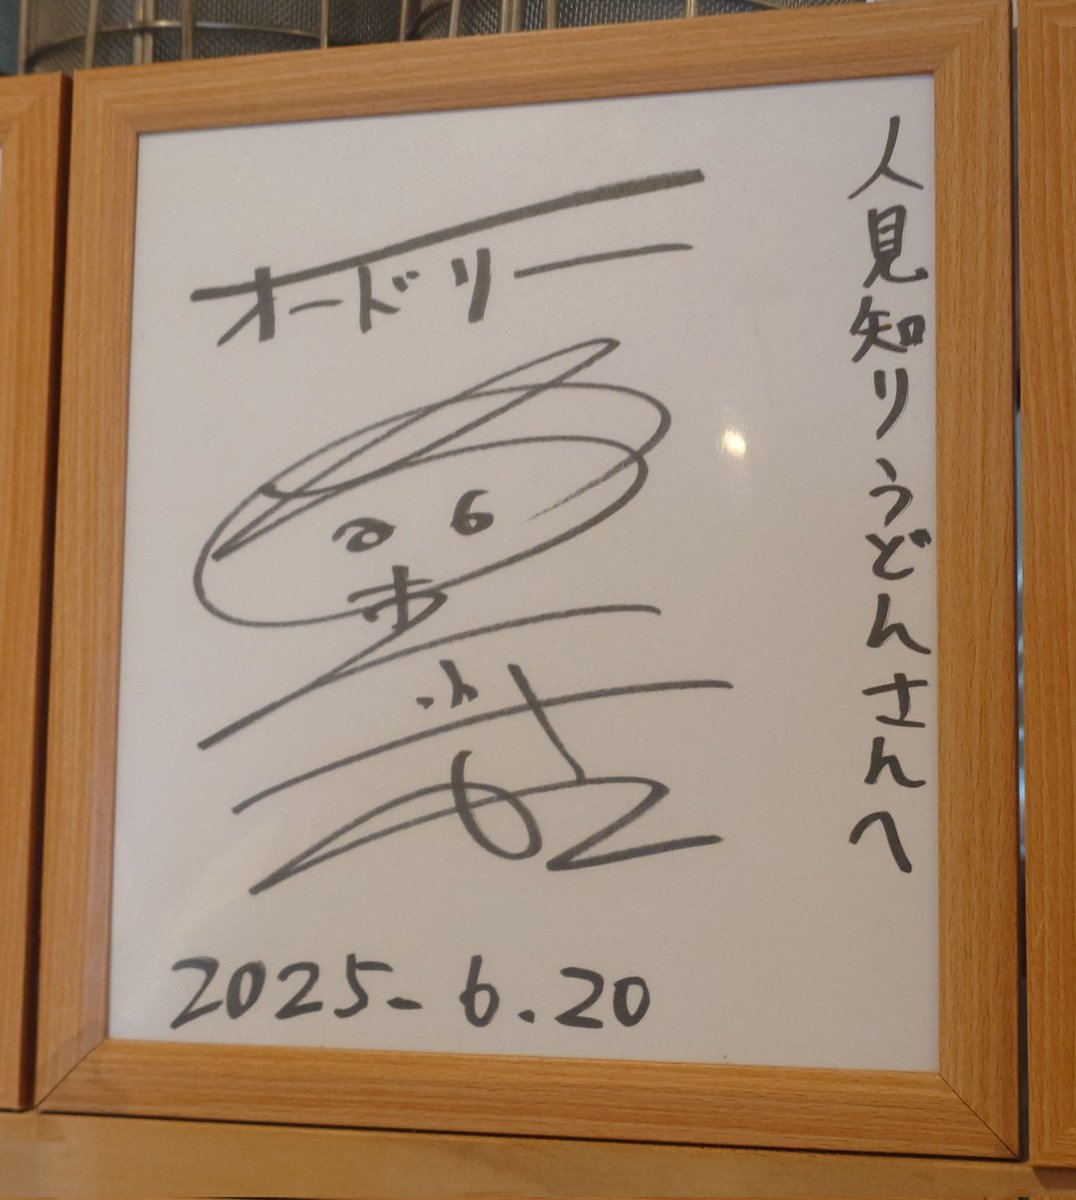 人見知りうどんさんへ
オードリー
2025.6.20